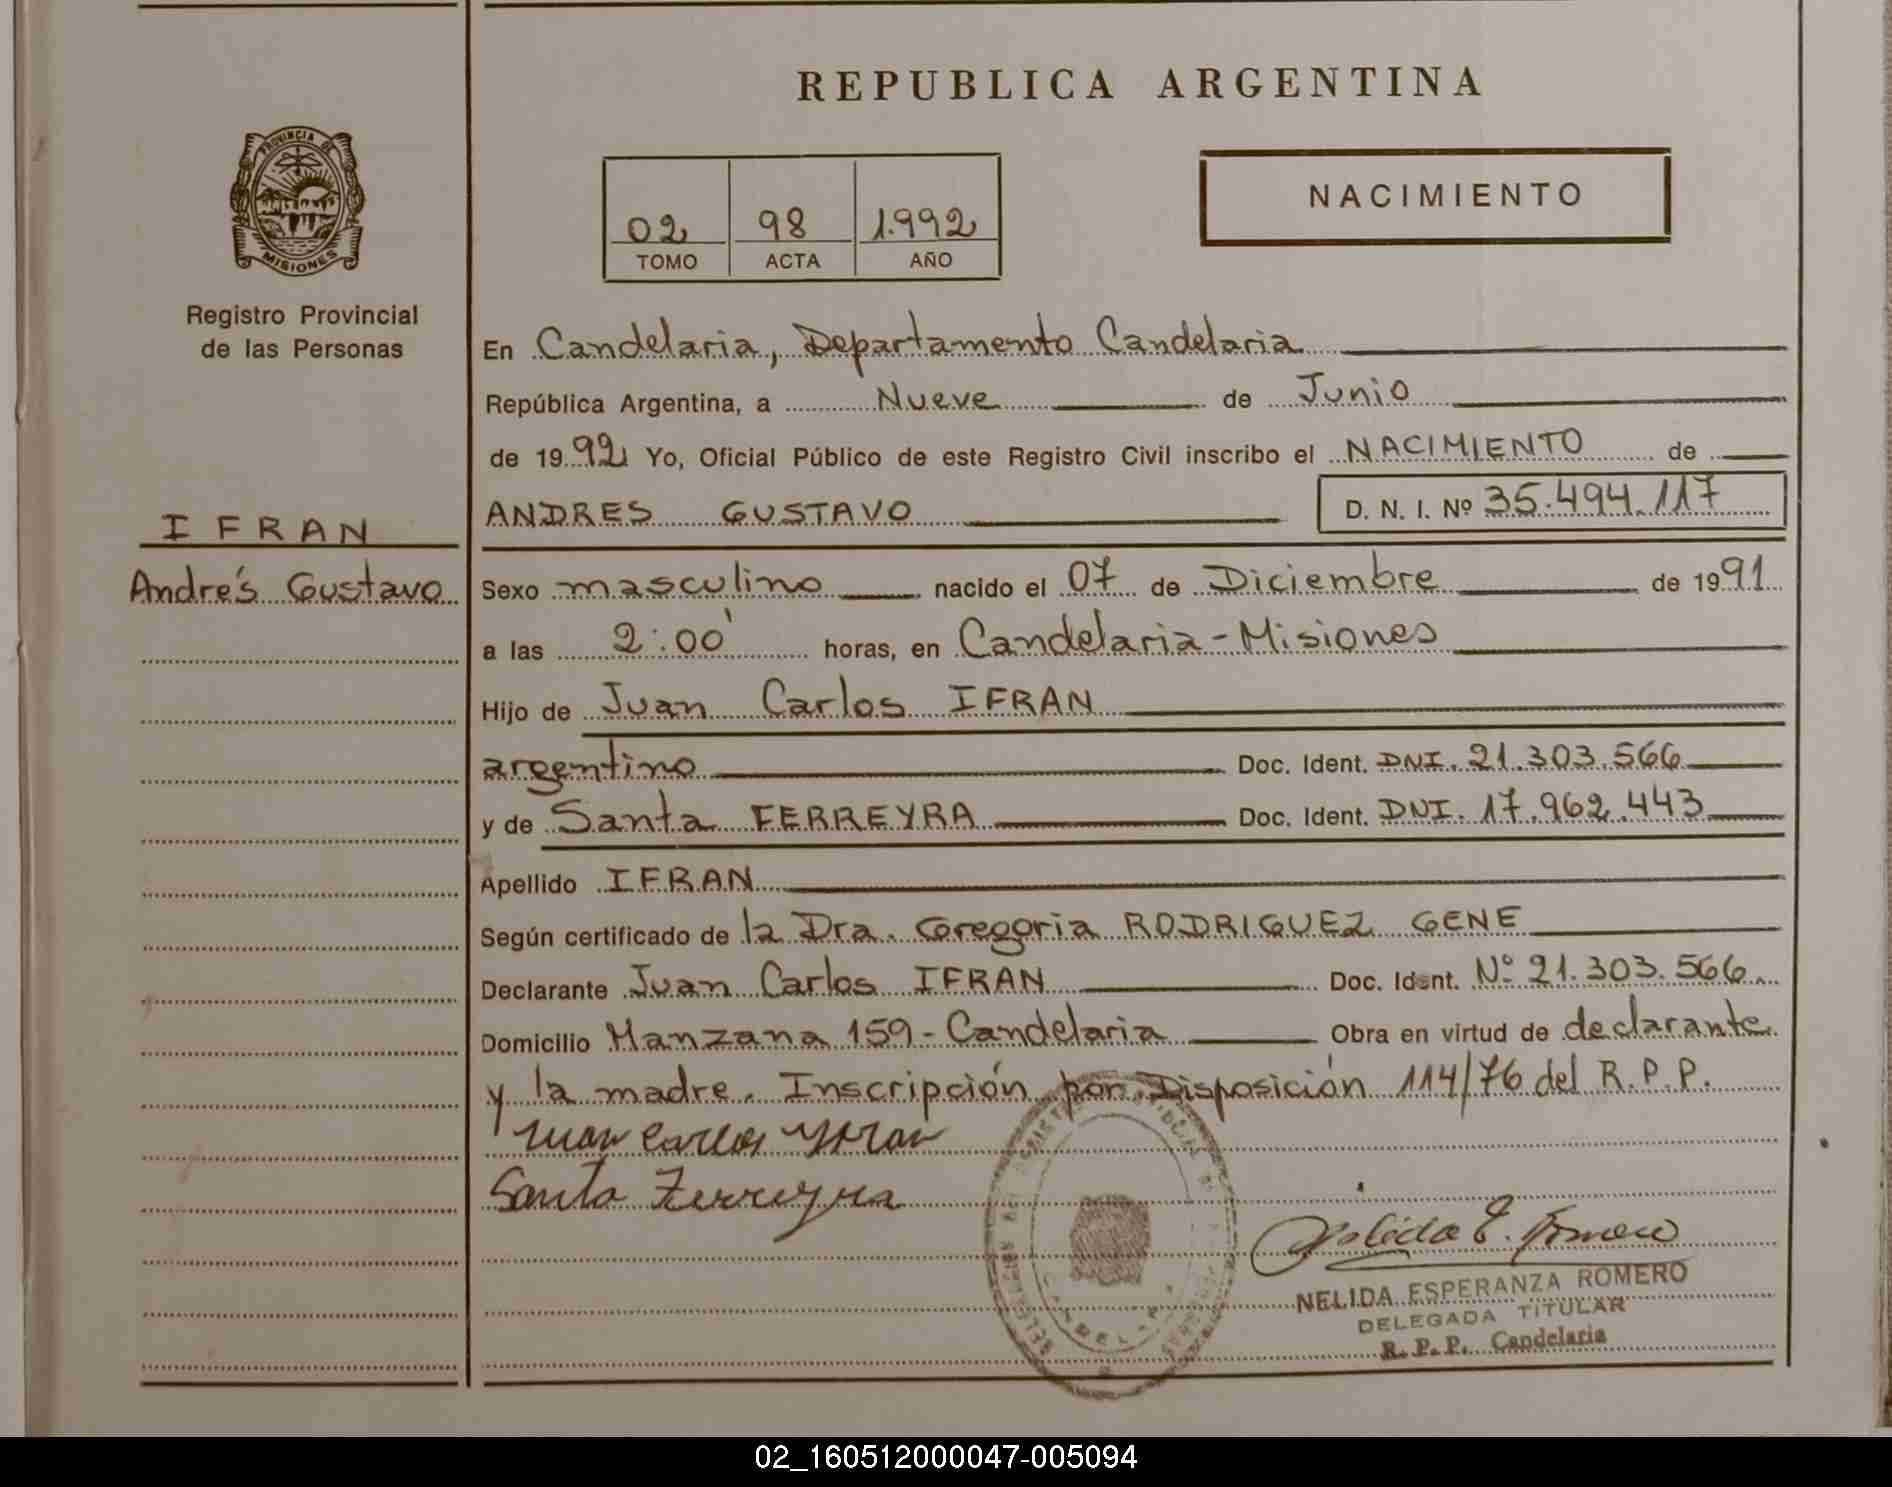 REPUBLICA ARGENTINA
PROVINCIA DE
MISIONES
Registro Provincial
de las Personas
NACIMIENTO
02 98 1.992
TOMO ACTA AÑO
En Candelaria, Departamento Candelaria
República Argentina, a Nueve de Junio
de 1992 Yo, Oficial Público de este Registro Civil inscribo el NACIMIENTO de
ANDRES GUSTAVO D. N. I. Nº 35.494.117
IFRAN
Andrés Gustavo
Sexo masculino nacido el 07 de Diciembre de 1991
a las 2:00' horas, en Candelaria-Misiones
Hijo de Juan Carlos IFRAN
argentino Doc. Ident. DNI. 21.303.566
y de Santa FERREYRA Doc. Ident. DNI. 17.962.443
Apellido IFRAN
Según certificado de la Dra. Gregoria RODRIGUEZ GENE
Declarante Juan Carlos IFRAN Doc. Ident. Nº 21.303.566
Domicilio Manzana 159-Candelaria Obra en virtud de declarante
y la madre. Inscripción por Disposición 114/76 del R.P.P.
Juan Carlos Yfran
Santa Ferreyra
NELIDA ESPERANZA ROMERO
DELEGADA TITULAR
R. P. P. Candelaria
02_160512000047-005094